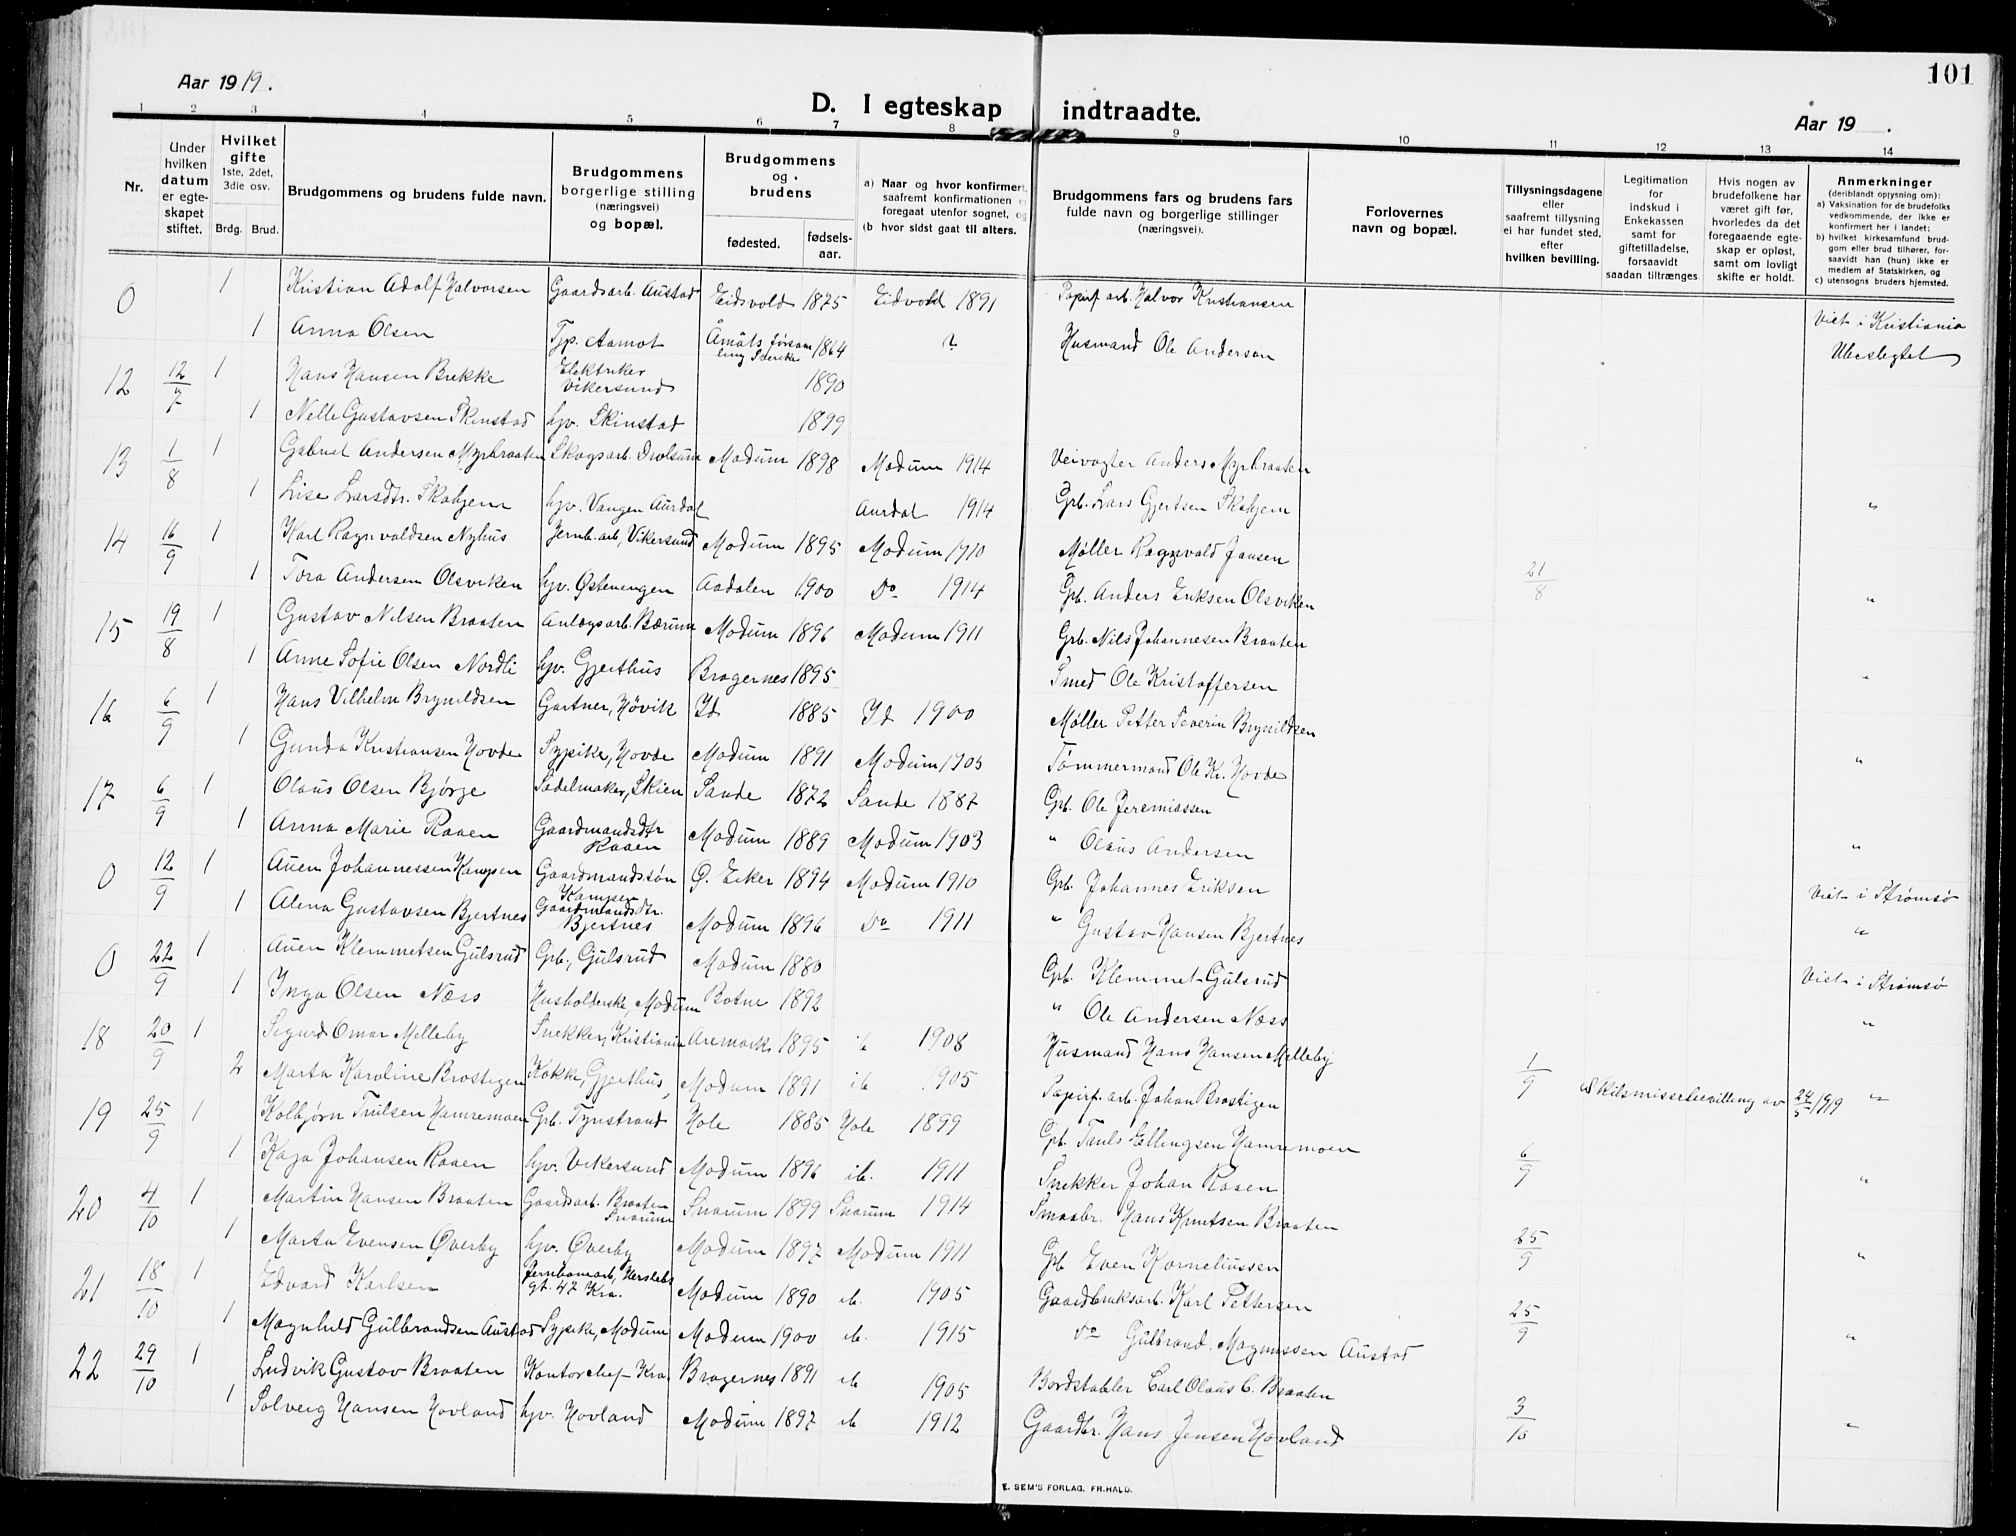 101
Aar 1919.
D. I egteskap indtraadte.
Aar 19 .
1 2 3 4 5 6 7 8 9 10 11 12 13 14
Nr.
Under hvilken datum er egteskapet stiftet.
Hvilket gifte 1ste, 2det, 3die osv. Brdg. Brud.
Brudgommens og brudens fulde navn.
Brudgommens borgerlige stilling (næringsvei) og bopæl.
Brudgommens og brudens fødested. fødselsaar.
a) Naar og hvor konfirmert, saafremt konfirmationen er foregaat utenfor sognet, og
(b hvor sidst gaat til alters.
Brudgommens fars og brudens fars fulde navn og borgerlige stillinger (næringsvei).
Forlovernes navn og bopæl.
Tillysningsdagene eller saafremt tillysning ei har fundet sted, efter hvilken bevilling.
Legitimation for indskud i Enkekassen samt for giftetilladelse, forsaavidt saadan tiltrænges
Hvis nogen av brudefolkene har været gift før, hvorledes da det foregaaende egteskap er opløst, samt om lovligt skifte er holdt.
Anmerkninger (deriblandt opjysning om):
a) Vaksination for de brudefolks vedkommende, der ikke er konfirmert her i landet;
b) hvilket kirkesamfund brudgom eller brud tilhører, forsaavidt han (hun) ikke er medlem af Statskirken, og
c) utensogns bruders hjemsted.
0 1 Kristian Adolf Halvorsen Gaardsarb. Austad Eidsvold 1875 Eidvold 1891 Papirf. arb. Halvor Kristiansen Viet i Kristiania
1 Anna Olsen Tjp. Aamot Åmåts försam ling Sverike 1864 ? Husmand Ole Anderson Ubeslegtet
12 12/7 1 Hans Hansen Brekke Elektriker Vikersund 1890
1 Nelle Gustavsen Skinstad hjv. Skinstad 1899
13 1/8 1 Gabriel Andersen Myrbraaten Skogsarb. Drolsum Modum 1898 Modum 1914 Veivogter Anders Myrbraaten
1 Lise Larsdtr. Skahjem hjv. Vangen Aurdal Aurdal 1914 Grb. Lars Gjertsen Skahjem "
14 16/9 1 Karl Ragnvaldsen Nyhus Jernb.arb, Vikersund Modum 1895 Modum 1910 Møller Ragnvald Jansen
1 Tora Andersen Olsviken hjv. Østenengen Aadalen 1900 Do 1914 Grb. Anders Eriksen Olsviken 21/8 "
15 19/8 1 Gustav Nilsen Braaten Anlægsarb. Bærum Modum 1896 Modum 1911 Grb. Nils Johannesen Braaten
1 Anne Sofie Olsen Nordli hjv. Gjerthus Bragernes 1895 Smed Ole Kristoffersen "
16 6/9 1 Hans Vilhelm Brynildsen Gartner, Høvik Id 1885 Id 1900 Møller Petter Severin Brynildsen
1 Gunda Kristiansen Hovde Sypike, Hovde Modum 1891 Modum 1905 Tømmermand Ole Kr. Hovde "
17 6/9 1 Olaus Olsen Bjørge Sadelmaker, Skien Sande 1872 Sande 1887 Grb. Ole Jeremiassen
1 Anna Marie Raaen Gaardmandsdtr Raaen Modum 1889 Modum 1903 " Olaus Andersen "
0 12/9 1 Auen Johannessen Kampen Gaardmandssøn Kampen Ø. Eker 1894 Modum 1910 Grb. Johannes Eriksen Viet i Strømsø
1 Alena Gustavsen Bjertnes Gaardmandsdtr. Bjertnes Modum 1896 Do 1911 " Gustav Hansen Bjertnes "
0 22/9 1 Auen Klemmetsen Gulsrud Grb., Gulsrud Modum 1880 Grb. Klemmet Gulsrud Viet i Strømsø
1 Inga Olsen Næss Husholderske, Modum Botne 1892 " Ole Andersen Næss "
18 20/9 1 Sigurd Omar Melleby Snekker, Kristiania Aremark 1895 ib 1908 Husmand Hans Hansen Melleby
2 Marta Karoline Brostigen Kokke, Gjerthus, Modum 1891 ib 1905 Papirf. arb. Johan Brostigen 1/9 Skilsmissebevilling av 24/5 1919 "
19 25/9 1 Kolbjørn Trulsen Hamremoen Grb. Tynstrand Hole 1885 Hole 1899 Grb. Truls Ellingsen Hamremoen
1 Kaja Johansen Raaen hjv. Vikersund Modum 1896 ib. 1911 Snekker Johan Raaen 6/9 "
20 4/10 1 Martin Hansen Braaten Gaardsarb. Braaten Snarum Snarum 1899 Snarum 1914 Smaabr. Hans Knutsen Braaten
1 Marta Evensen Øverby hjv. Øverby Modum 1897 Modum 1911 Grb Even Korneliussen 25/9 "
21 18/10 1 Edvard Karlsen Jernbanearb, Herslebs gt. 47 Kra. Modum 1890 ib. 1905 Gaardbruksarb. Karl Pettersen
1 Magnhild Gulbrandsen Austad Sypike, Modum Modum 1900 ib. 1915 Do Gulbrand Magnussen Austad 25/9 "
22 29/10 1 Ludvik Gustav Braaten Kontorchef Kra. Bragernes 1891 ib 1905 Bordstabler Carl Olaus C. Braaten
1 Solveig Hansen Hovland hjv. Hovland Modum 1897 ib 1912 Gaardbr. Hans Jensen Hovland 3/10 "
E. SEM'S FORLAG, FR.HALD.